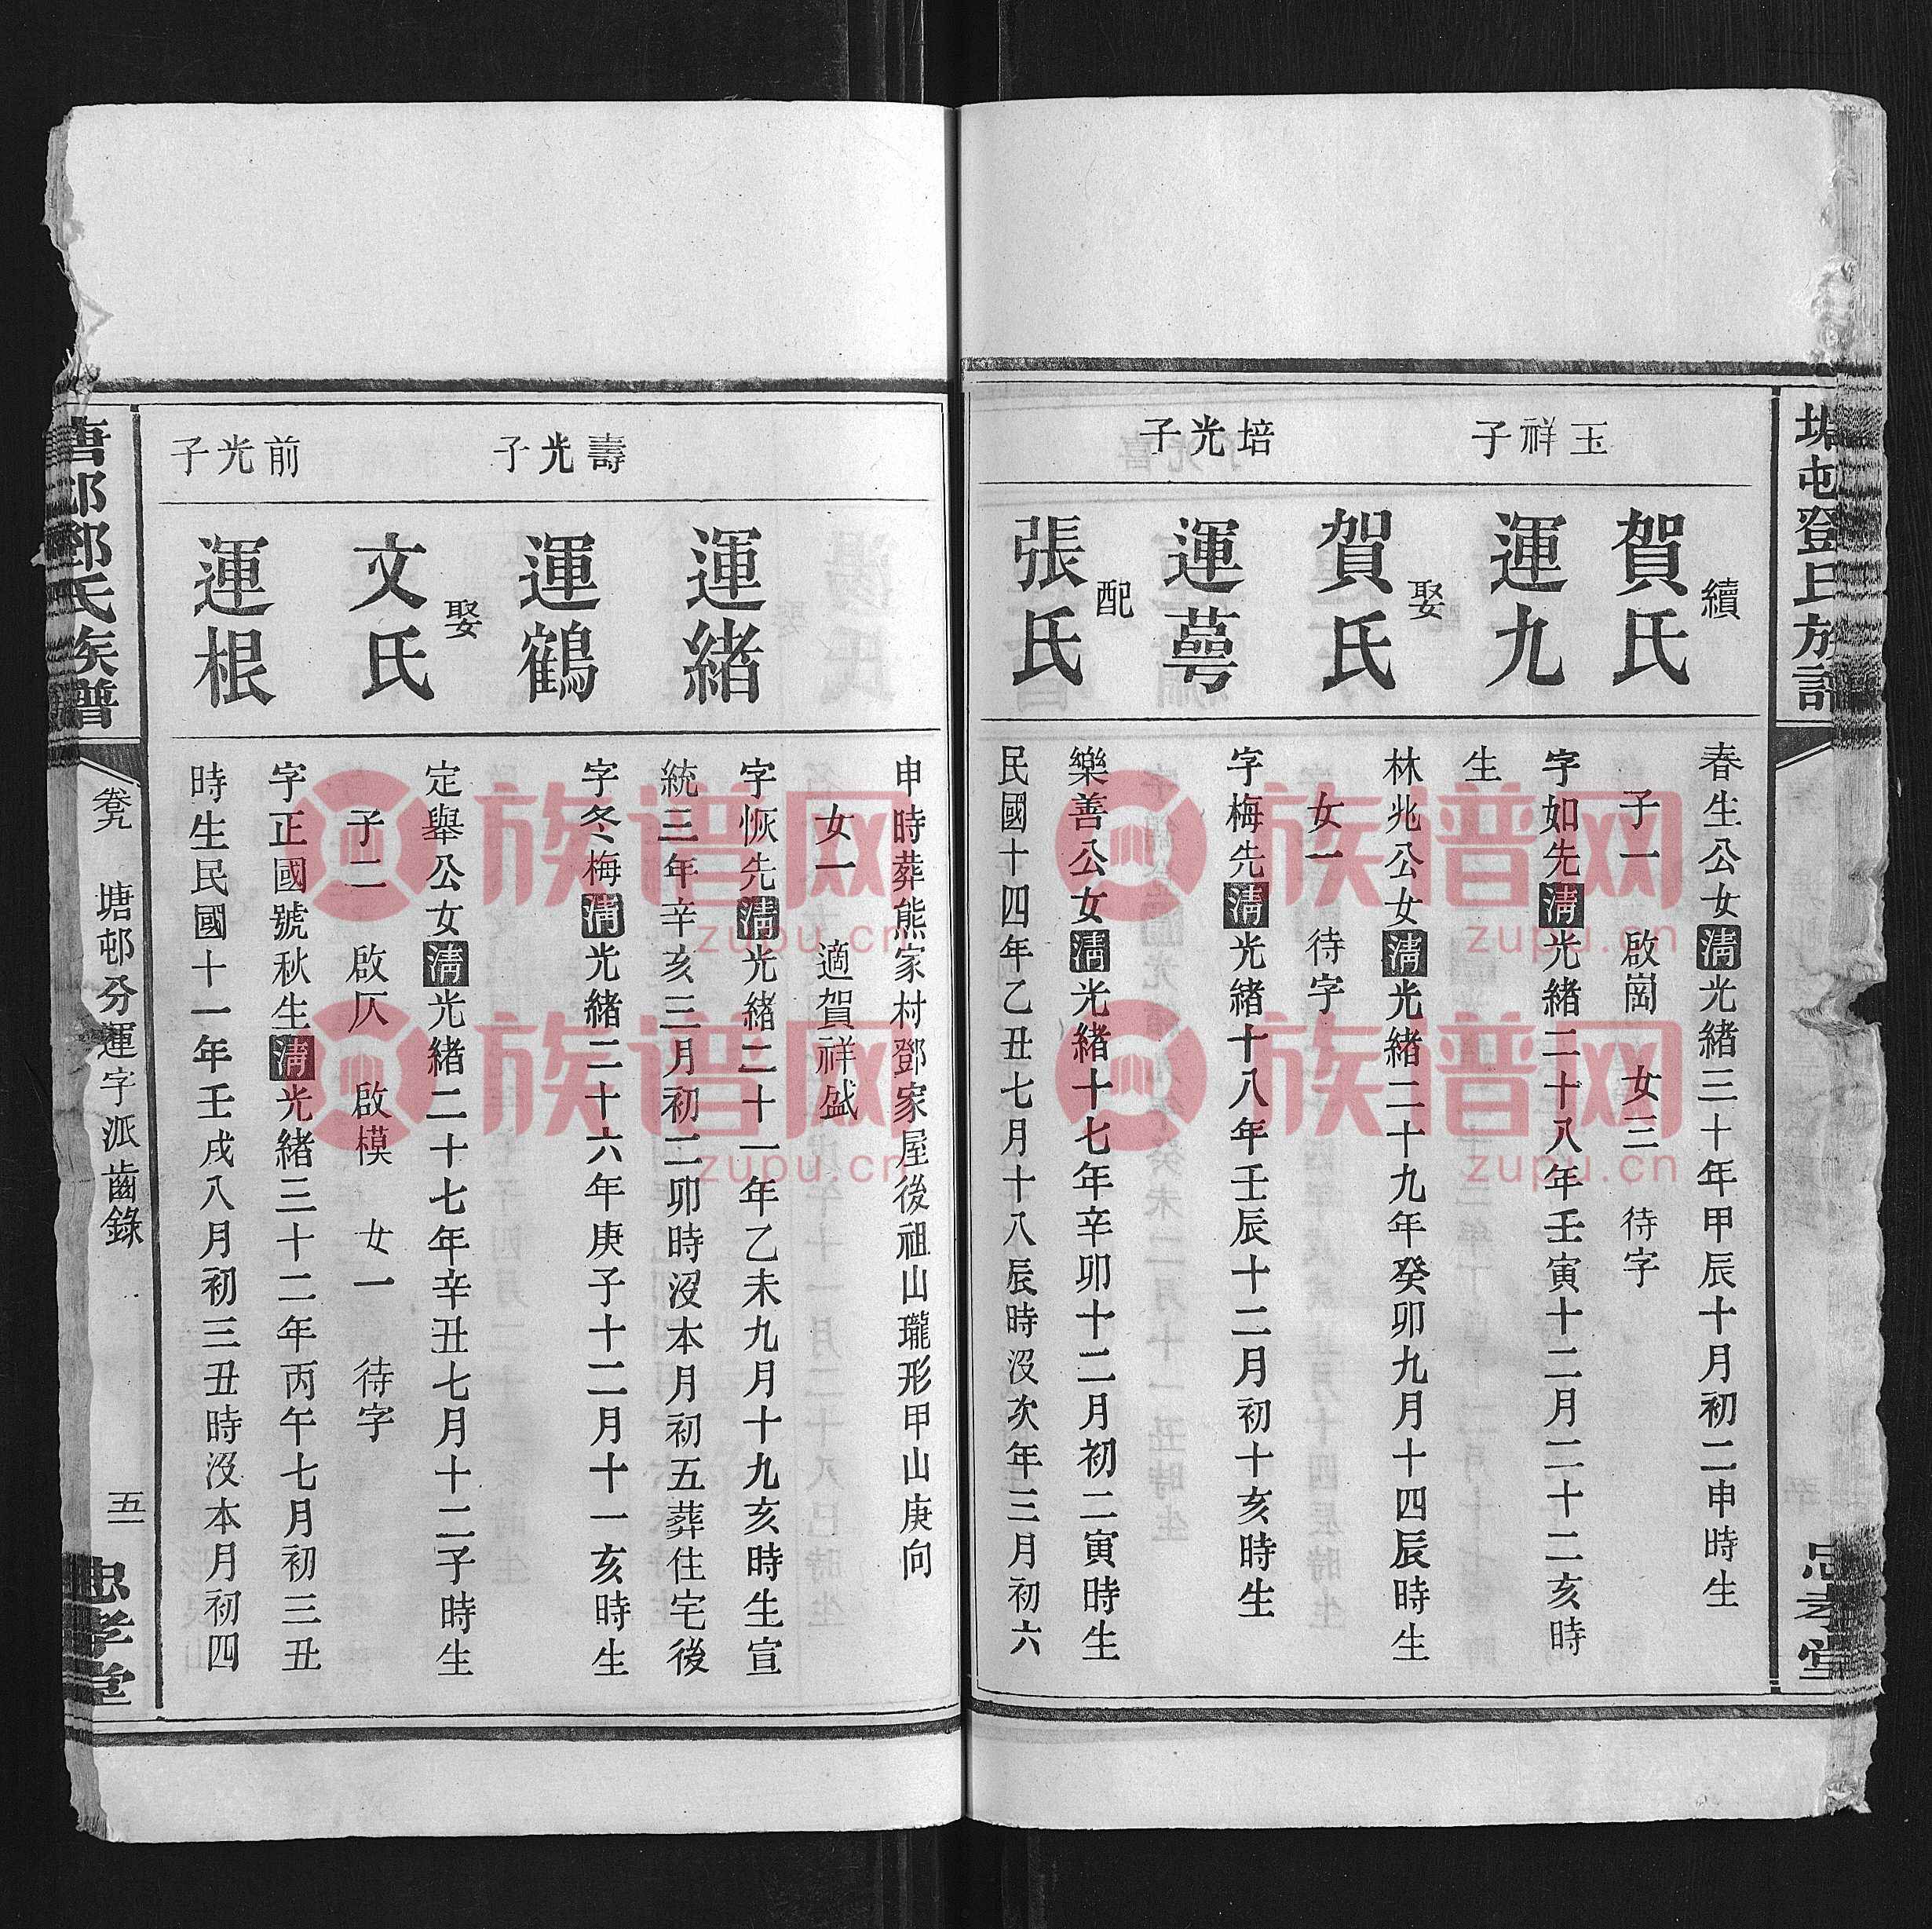 塘邨鄧氏族譜
忠孝堂
續
賀氏
春生公女清光緒三十年甲辰十月初二申時生
子一　啟崗　女三　待字
玉祥子
運九
字如先清光緒二十八年壬寅十二月二十二亥時
生
娶
賀氏
林兆公女清光緒二十九年癸卯九月十四辰時生
女一　待字
培光子
運萼
字梅先清光緒十八年壬辰十二月初十亥時生
配
張氏
樂善公女清光緒十七年辛卯十二月初二寅時生
民國十四年乙丑七月十八辰時沒次年三月初六
申時葬熊家村鄧家屋後祖山瓏形甲山庚向
女一　適賀祥盛
運緒
字恢先清光緒二十一年乙未九月十九亥時生宣
統三年辛亥三月初二卯時沒本月初五葬住宅後
壽光子
運鶴
字冬梅清光緒二十六年庚子十二月十一亥時生
娶
文氏
定舉公女清光緒二十七年辛丑七月十二子時生
子二　啟仄　啟模　女一　待字
前光子
運根
字正國號秋生清光緒三十二年丙午七月初三丑
時生民國十一年壬戌八月初三丑時沒本月初四
唐邨鄧氏族譜
卷九　塘邨分運字派齒錄
五
忠孝堂
族谱网
zupu.cn
族谱网
zupu.cn
族谱网
zupu.cn
族谱网
zupu.cn